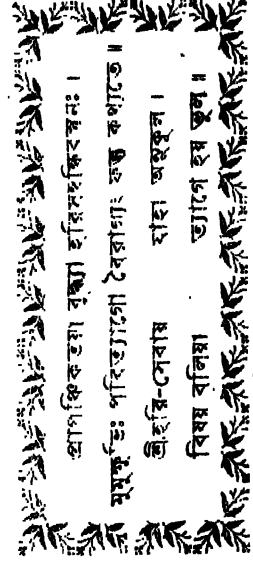 প্রাপঞ্চিকতয়া বুদ্ধ্যা হরিসম্বন্ধিবস্তুনঃ ।
মুমুক্ষুভিঃ পরিত্যাগো বৈরাগ্যং ফল্গু কথ্যতে ॥
শ্রীহরি-সেবায় যাহা অনুকূল ।
বিষয় বলিয়া ত্যাগে হয় ভুল ॥